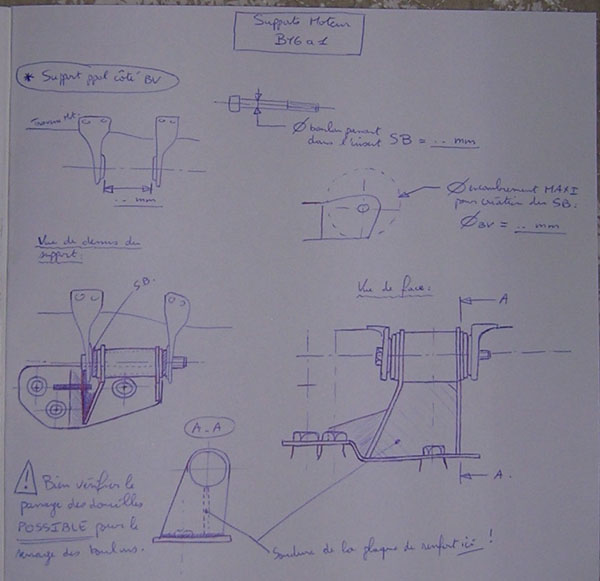 Supports Moteur
BY6 a 1
* Support ppal côté BV
Traverse Mt.
.. mm
Ø boulon passant
dans l'insert SB = .. mm
Ø encombrement MAXI
pour création des SB:
ØBV = .. mm
Vue de dessus du
support:
SB.
Vue de face:
A
A_A
A.
⚠ Bien vérifier le
passage des douilles
POSSIBLE pour le
serrage des boulons.
Soudure de la plaque de renfort ici !